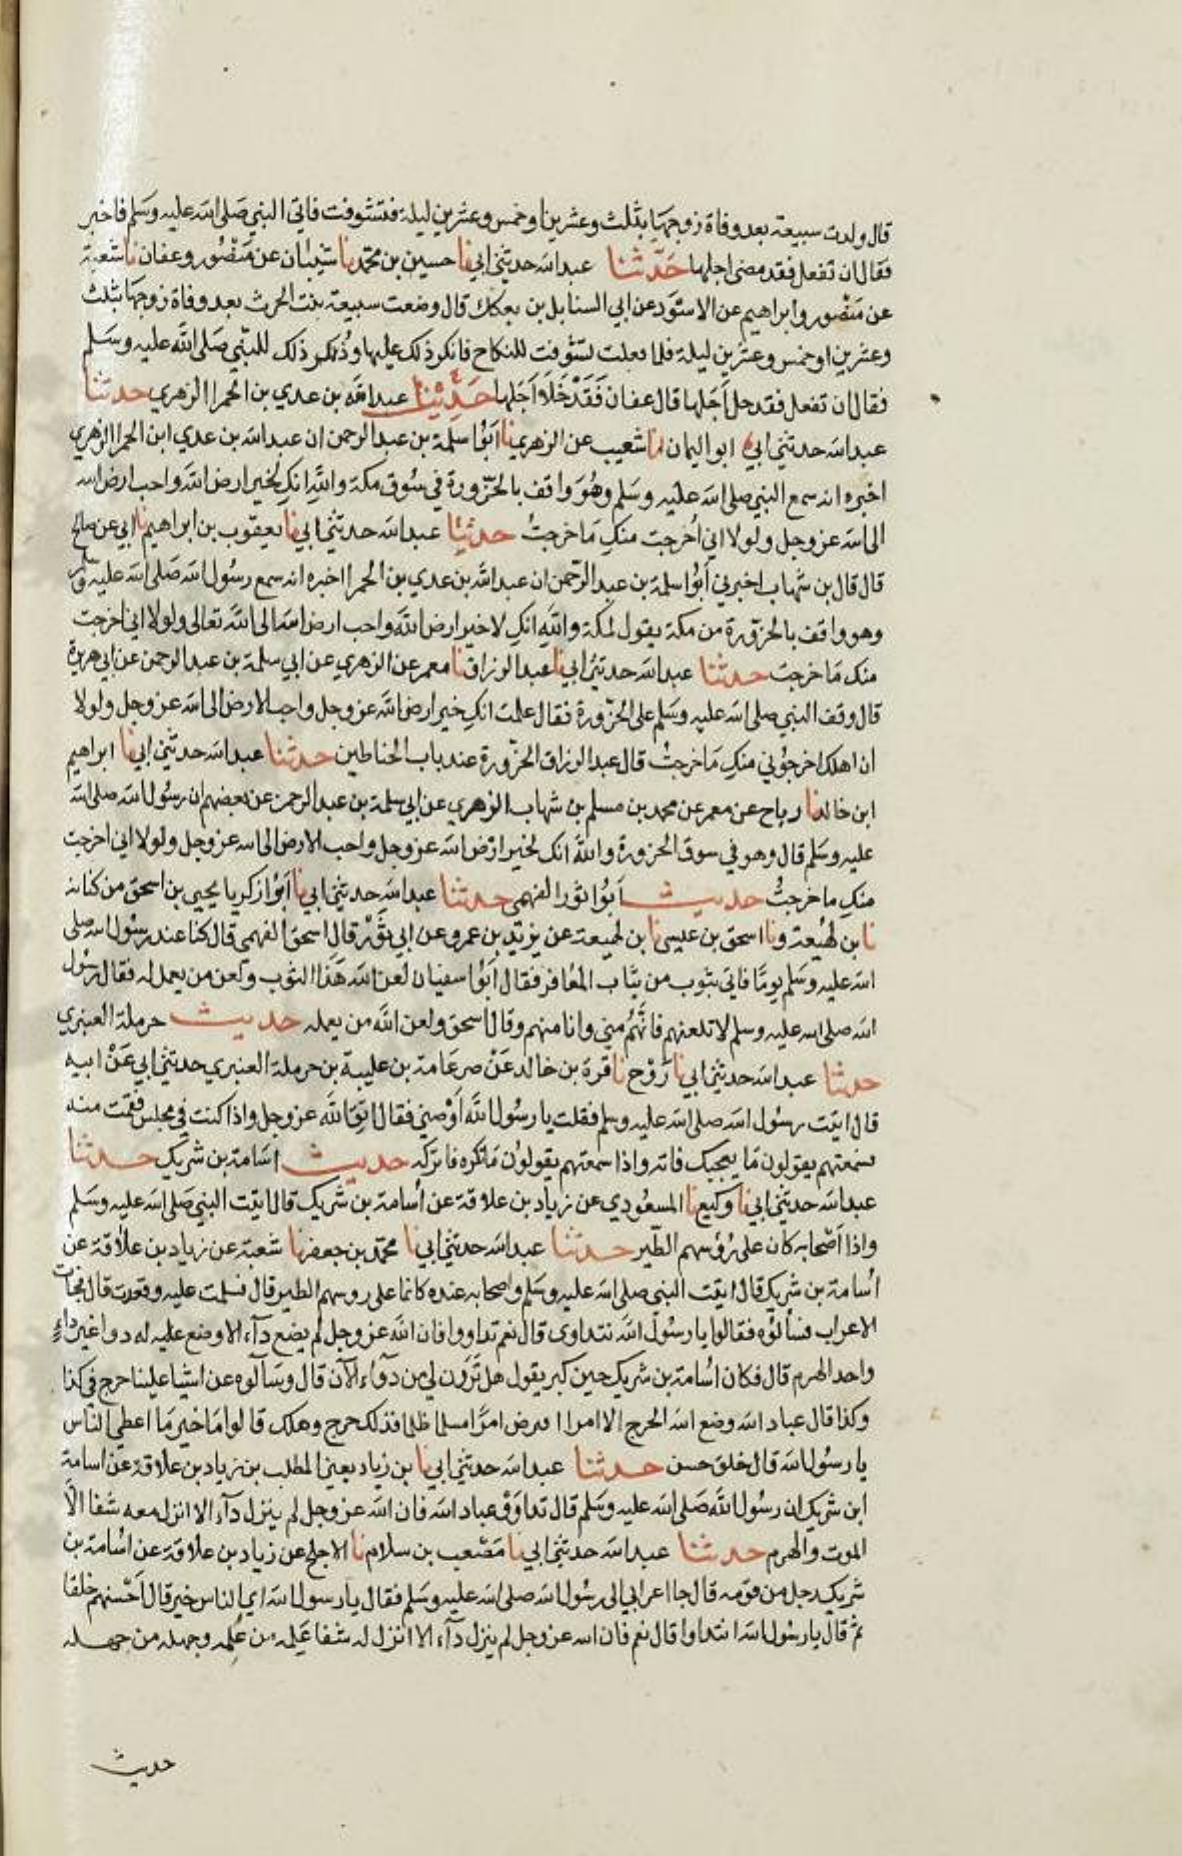 قال ولدت سبيعة بعد وفاة زوجها بثلث وعشرين او خمس وعشرين ليلة فتشوفت فاتى النبي صلى الله عليه وسلم فاخبر
فقال ان تفعل فقد مضى اجلها حدثنا عبد الله حدثني ابي نا حسين بن محمد نا شيبان عن منصور وعفان نا شعبة
عن منصور وابراهيم عن الاسود عن ابي السنابل بن بعكك قال وضعت سبيعة بنت الحرث بعد وفاة زوجها بثلث
وعشرين او خمس وعشرين ليلة فلما تعلت تشوفت للنكاح فانكر ذلك عليها وذكر ذلك للنبي صلى الله عليه وسلم
فقال ان تفعل فقد حل اجلها قال عفان فقد خلا اجلها حديث عبد الله بن عدي بن الحمرا الزهري حدثنا
عبد الله حدثني ابي ابو اليمان انا شعيب عن الزهري نا ابو سلمة بن عبد الرحمن ان عبد الله بن عدي ابن الحمرا الزهري
اخبره انه سمع النبي صلى الله عليه وسلم وهو واقف بالحزورة في سوق مكة والله انك لخير ارض الله واحب ارض الله
الى الله عز وجل ولولا اني اخرجت منك ما خرجت حدثنا عبد الله حدثني ابي نا يعقوب بن ابراهيم نا ابي عن صالح
قال قال بن شهاب اخبرني ابو سلمة بن عبد الرحمن ان عبد الله بن عدي بن الحمرا اخبره انه سمع رسول الله صلى الله عليه وسلم
وهو واقف بالحزورة من مكة يقول لمكة والله انك لاخير ارض الله واحب ارض الله الى الله تعالى ولولا اني اخرجت
منك ما خرجت حدثنا عبد الله حدثني ابي نا عبد الرزاق نا معمر عن الزهري عن ابي سلمة بن عبد الرحمن عن ابي هريرة
قال وقف النبي صلى الله عليه وسلم على الحزورة فقال علمت انك خير ارض الله عز وجل واحب الارض الى الله عز وجل ولولا
ان اهلك اخرجوني منك ما خرجت قال عبد الرزاق الحزورة عند باب الحناطين حدثنا عبد الله حدثني ابي نا ابراهيم
ابن خالد نا رباح عن معمر عن محمد بن مسلم بن شهاب الزهري عن ابي سلمة بن عبد الرحمن عن بعضهم ان رسول الله صلى الله
عليه وسلم قال وهو في سوق الحزورة والله انك لخير ارض الله عز وجل واحب الارض الى الله عز وجل ولولا اني اخرجت
منك ما خرجت حديث ابو ثور الفهمي حدثنا عبد الله حدثني ابي نا ابو زكريا يحيى بن اسحق من كتابه
نا بن لهيعة ونا اسحق بن عيسى نا بن لهيعة عن يزيد بن عمرو عن ابي ثور قال اسحق الفهمي قال كنا عند رسول الله صلى
الله عليه وسلم يوما فاتى بثوب من ثياب المعافر فقال ابو سفيان لعن الله هذا الثوب ولعن من يعمل له فقال رسول
الله صلى الله عليه وسلم لا تلعنهم فانهم مني وانا منهم وقال اسحق ولعن الله من يعمله حديث حرملة العنبري
حدثنا عبد الله حدثني ابي نا روح نا قرة بن خالد عن ضرغامة بن عليبة بن حرملة العنبري حدثني ابي عن ابيه
قال اتيت رسول الله صلى الله عليه وسلم فقلت يا رسول الله اوصني فقال اتق الله عز وجل واذا كنت في مجلس فقمت منه
فسمعتهم يقولون ما يعجبك فاته واذا سمعتهم يقولون ما تكره فاتركه حديث اسامة بن شريك حدثنا
عبد الله حدثني ابي نا وكيع نا المسعودي عن زياد بن علاقة عن اسامة بن شريك قال اتيت النبي صلى الله عليه وسلم
واذا اصحابه كان على رؤسهم الطير حدثنا عبد الله حدثني ابي نا محمد بن جعفر نا شعبة عن زياد بن علاقة عن
اسامة بن شريك قال اتيت النبي صلى الله عليه وسلم واصحابه عنده كانما على روسهم الطير قال فسلمت عليه وقعدت قال فجات
الاعراب فسالوه فقالوا يا رسول الله نتداوى قال نعم تداووا فان الله عز وجل لم يضع دآء الا وضع عليه له دوا غير داء
واحد الهرم قال فكان اسامة بن شريك حين كبر يقول هل ترون لي من دواء الآن قال وسالوه عن اشيا علينا حرج في كذا
وكذا قال عباد الله وضع الله الحرج الا امرا اقرض امرا مسلما ظلما فذلك حرج وهلك قالوا ما خير ما اعطي الناس
يا رسول الله قال خلق حسن حدثنا عبد الله حدثني ابي نا بن زياد يعني المطلب بن زياد بن علاقة عن اسامة
ابن شريك ان رسول الله صلى الله عليه وسلم قال تداووا عباد الله فان الله عز وجل لم ينزل دآء الا انزل معه شفا الا
الموت والهرم حدثنا عبد الله حدثني ابي نا مصعب بن سلام نا الاجلح عن زياد بن علاقة عن اسامة بن
شريك رجل من قومه قال جا اعرابي الى رسول الله صلى الله عليه وسلم فقال يا رسول الله اي الناس خير قال احسنهم خلقا
ثم قال يا رسول الله انتداوا قال نعم فان الله عز وجل لم ينزل دآء الا انزل له شفا علمه من علمه وجهله من جهله
حديث